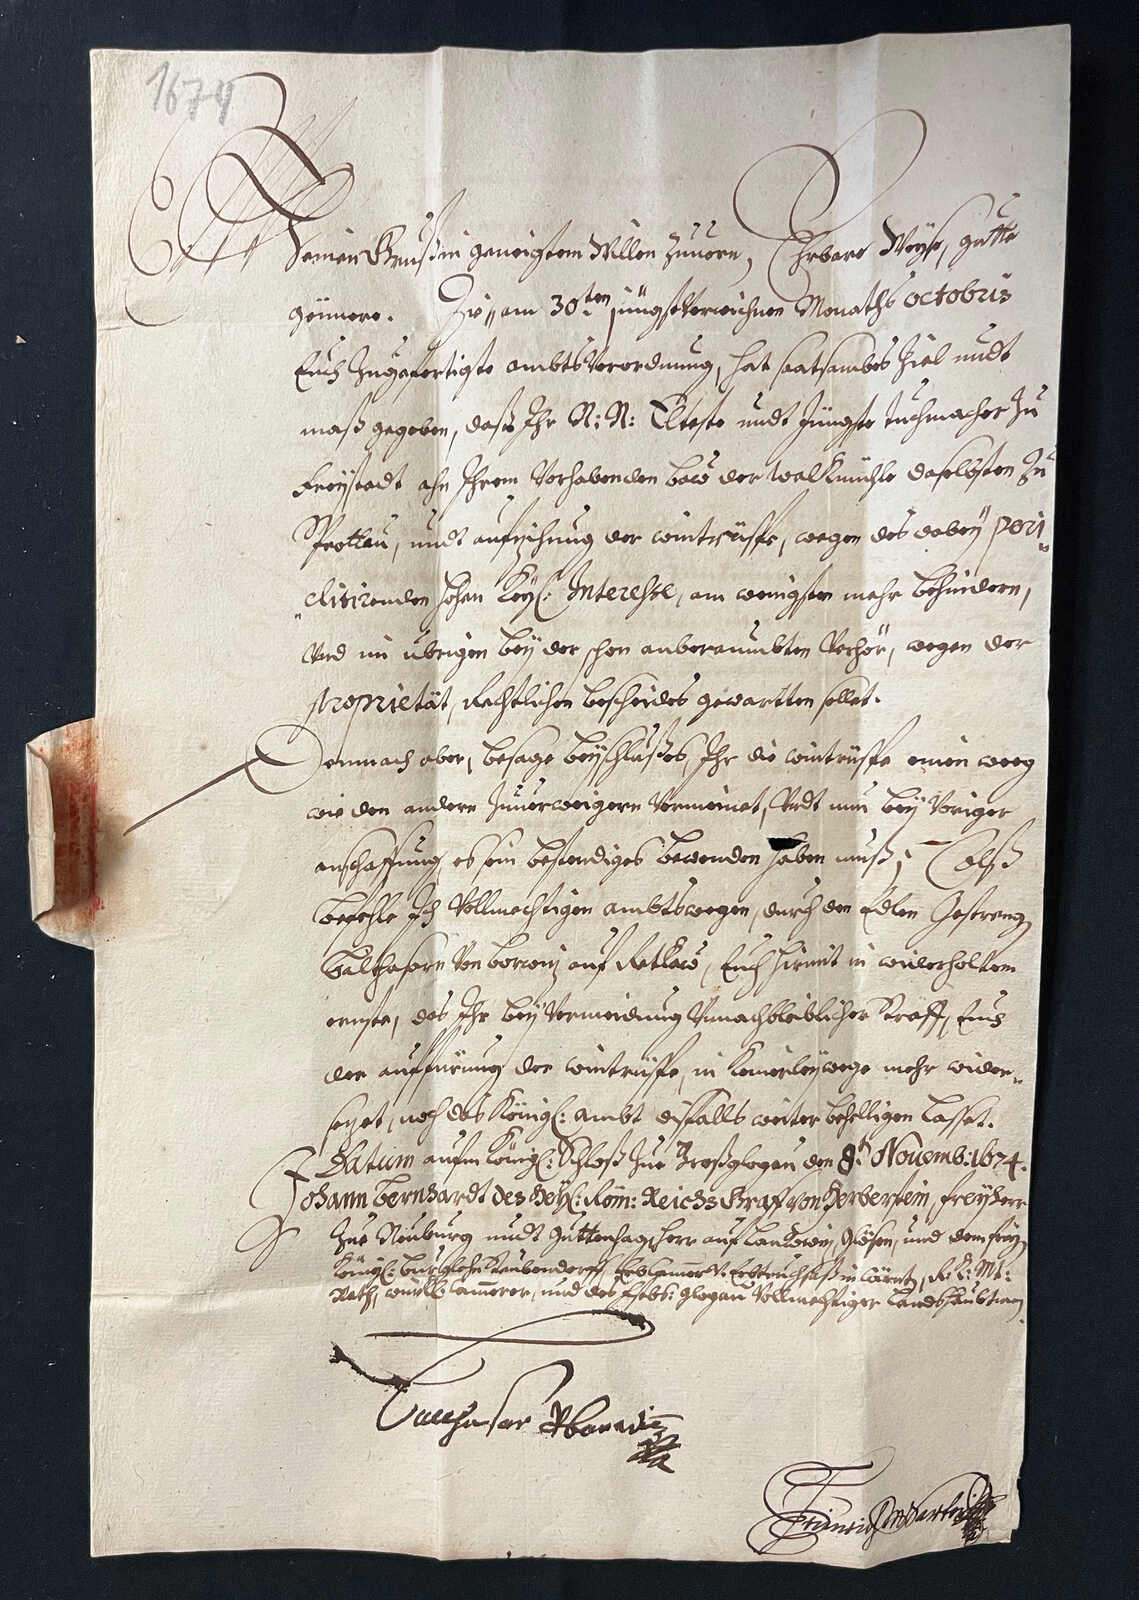 1674
Meinen Gruß in geneigtem Willen zuuorn, Ehrbare Weyse, gutte
gönnere. Die am 30ten jüngst verwichnen Monaths Octobris
Euch zugefertigte ambts verordnung, hat sattsambes Ziel undt
maß gegeben, dass Ihr N: N: Elteste undt Jüngste Tuchmacher zu
Freystadt ahn Ihrem Vorhabenden baw der Walkmühle daselbsten zu
Sprottau, undt aufzihung der, wegen des dabey peri
clitirenden hohen Key: Interesse, am wenigsten mehr behindern,
Vnd im übrigen bey der schon anberaumbten Verhör, wegen der
proprietät, Rechtlichen bescheides gewartten sollet.
Demnach aber, besage beyschlußes, Ihr die einen weeg
wie den andern zuuerweigern Vermeinet, Undt nun bey Voriger
anschaffung es sein bestendiges bewenden haben muß; Alß
befehle Ich Vollmechtigen ambtswegen, durch den Edlen Gestreng
Balthasarn Von auf, Euch hirmit in widerholtem
ernste, das Ihr bey Vermeidung Vnnachbleiblicher Straff, Euch
der aufführung der, in Keinerleywege mehr wider
setzet, noch das Königl: ambt disfalls weiter behelligen lasset.
Datum aufm Königl: Schloß zue Großglogau den 8t Novemb: 1674.
Johann Bernhardt des Heyl: Röm: Reichs Graff von Herberstein, Freyherr
zue Neuburg undt Guttenhag, Herr auf Lankowiz, und dem frey
Königl: Burglehn, Erb Cammer V. Erbtruchsäß in Kärnt, R: K: Mt:
Rath, würkl: Cammerer, und des Fstbs: Glogau Vollmechtiger Landshaubtman
Balthasar
Heinrich